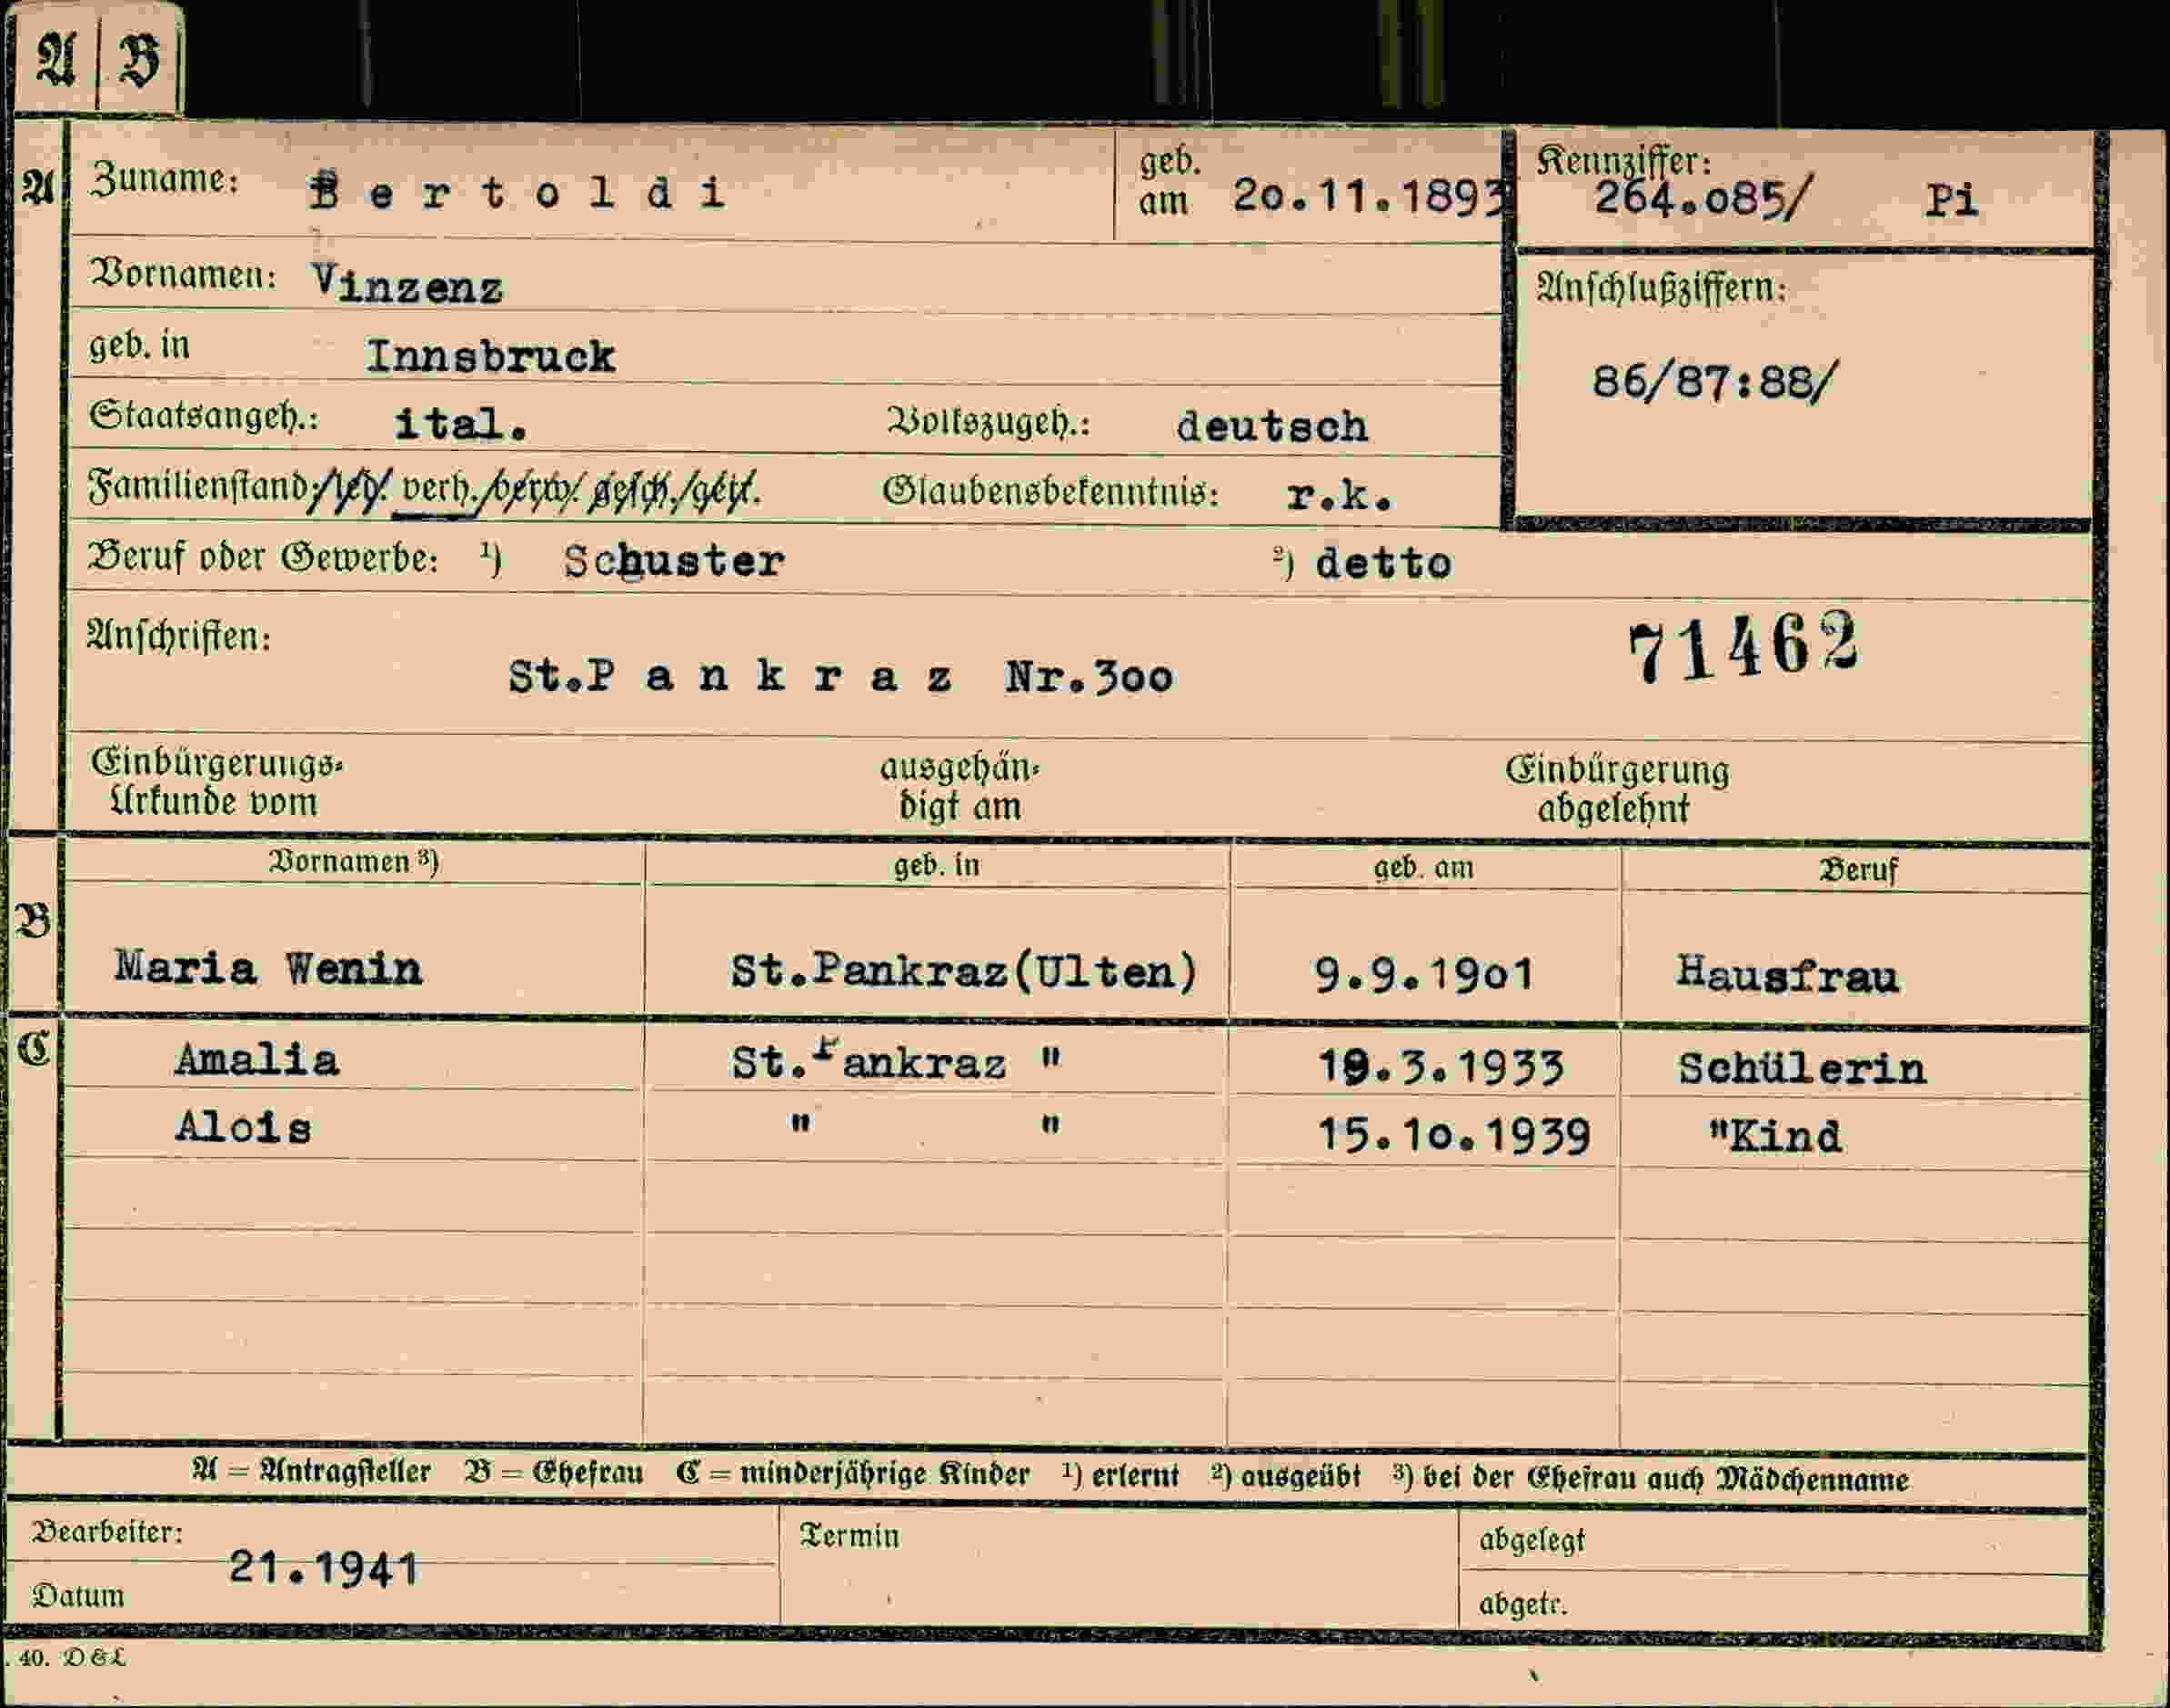 A B
A Zuname: B e r t o l d i geb. am 20.11.1893 Kennziffer: 264.085/ Pi
Vornamen: Vinzenz
Anschlußziffern:
geb. in Innsbruck
86/87:88/
Staatsangeh.: ital. Volkszugeh.: deutsch
Familienstand: led. verh. verw. gesch. get. Glaubensbekenntnis: r.k.
Beruf oder Gewerbe: ¹) Schuster ²) detto
Anschriften:
71462
St.P a n k r a z Nr.300
Einbürgerungs- ausgehän- Einbürgerung
Urkunde vom digt am abgelehnt
Vornamen ³) geb. in geb. am Beruf
B
Maria Wenin St.Pankraz(Ulten) 9.9.1901 Hausfrau
C
Amalia St.Pankraz " 19.3.1933 Schülerin
Alois " " 15.10.1939 "Kind
A = Antragsteller B = Ehefrau C = minderjährige Kinder ¹) erlernt ²) ausgeübt ³) bei der Ehefrau auch Mädchenname
Bearbeiter: Termin abgelegt
21.1941
Datum abgetr.
. 40. D & L